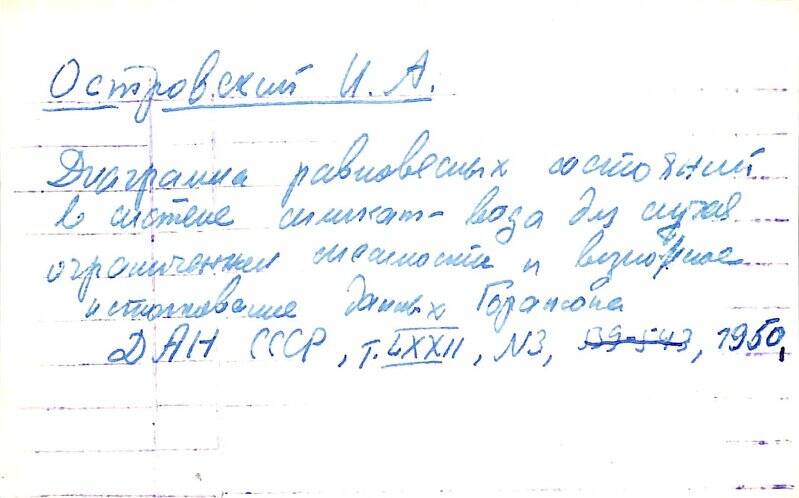 Островский И.А.
Диаграмма равновесных состояний
в системе силикат-вода для случая
ограниченной смесимости и возможное
истолкование данных Горансона
ДАН СССР, т. LXXII, N3, 539-543, 1950,